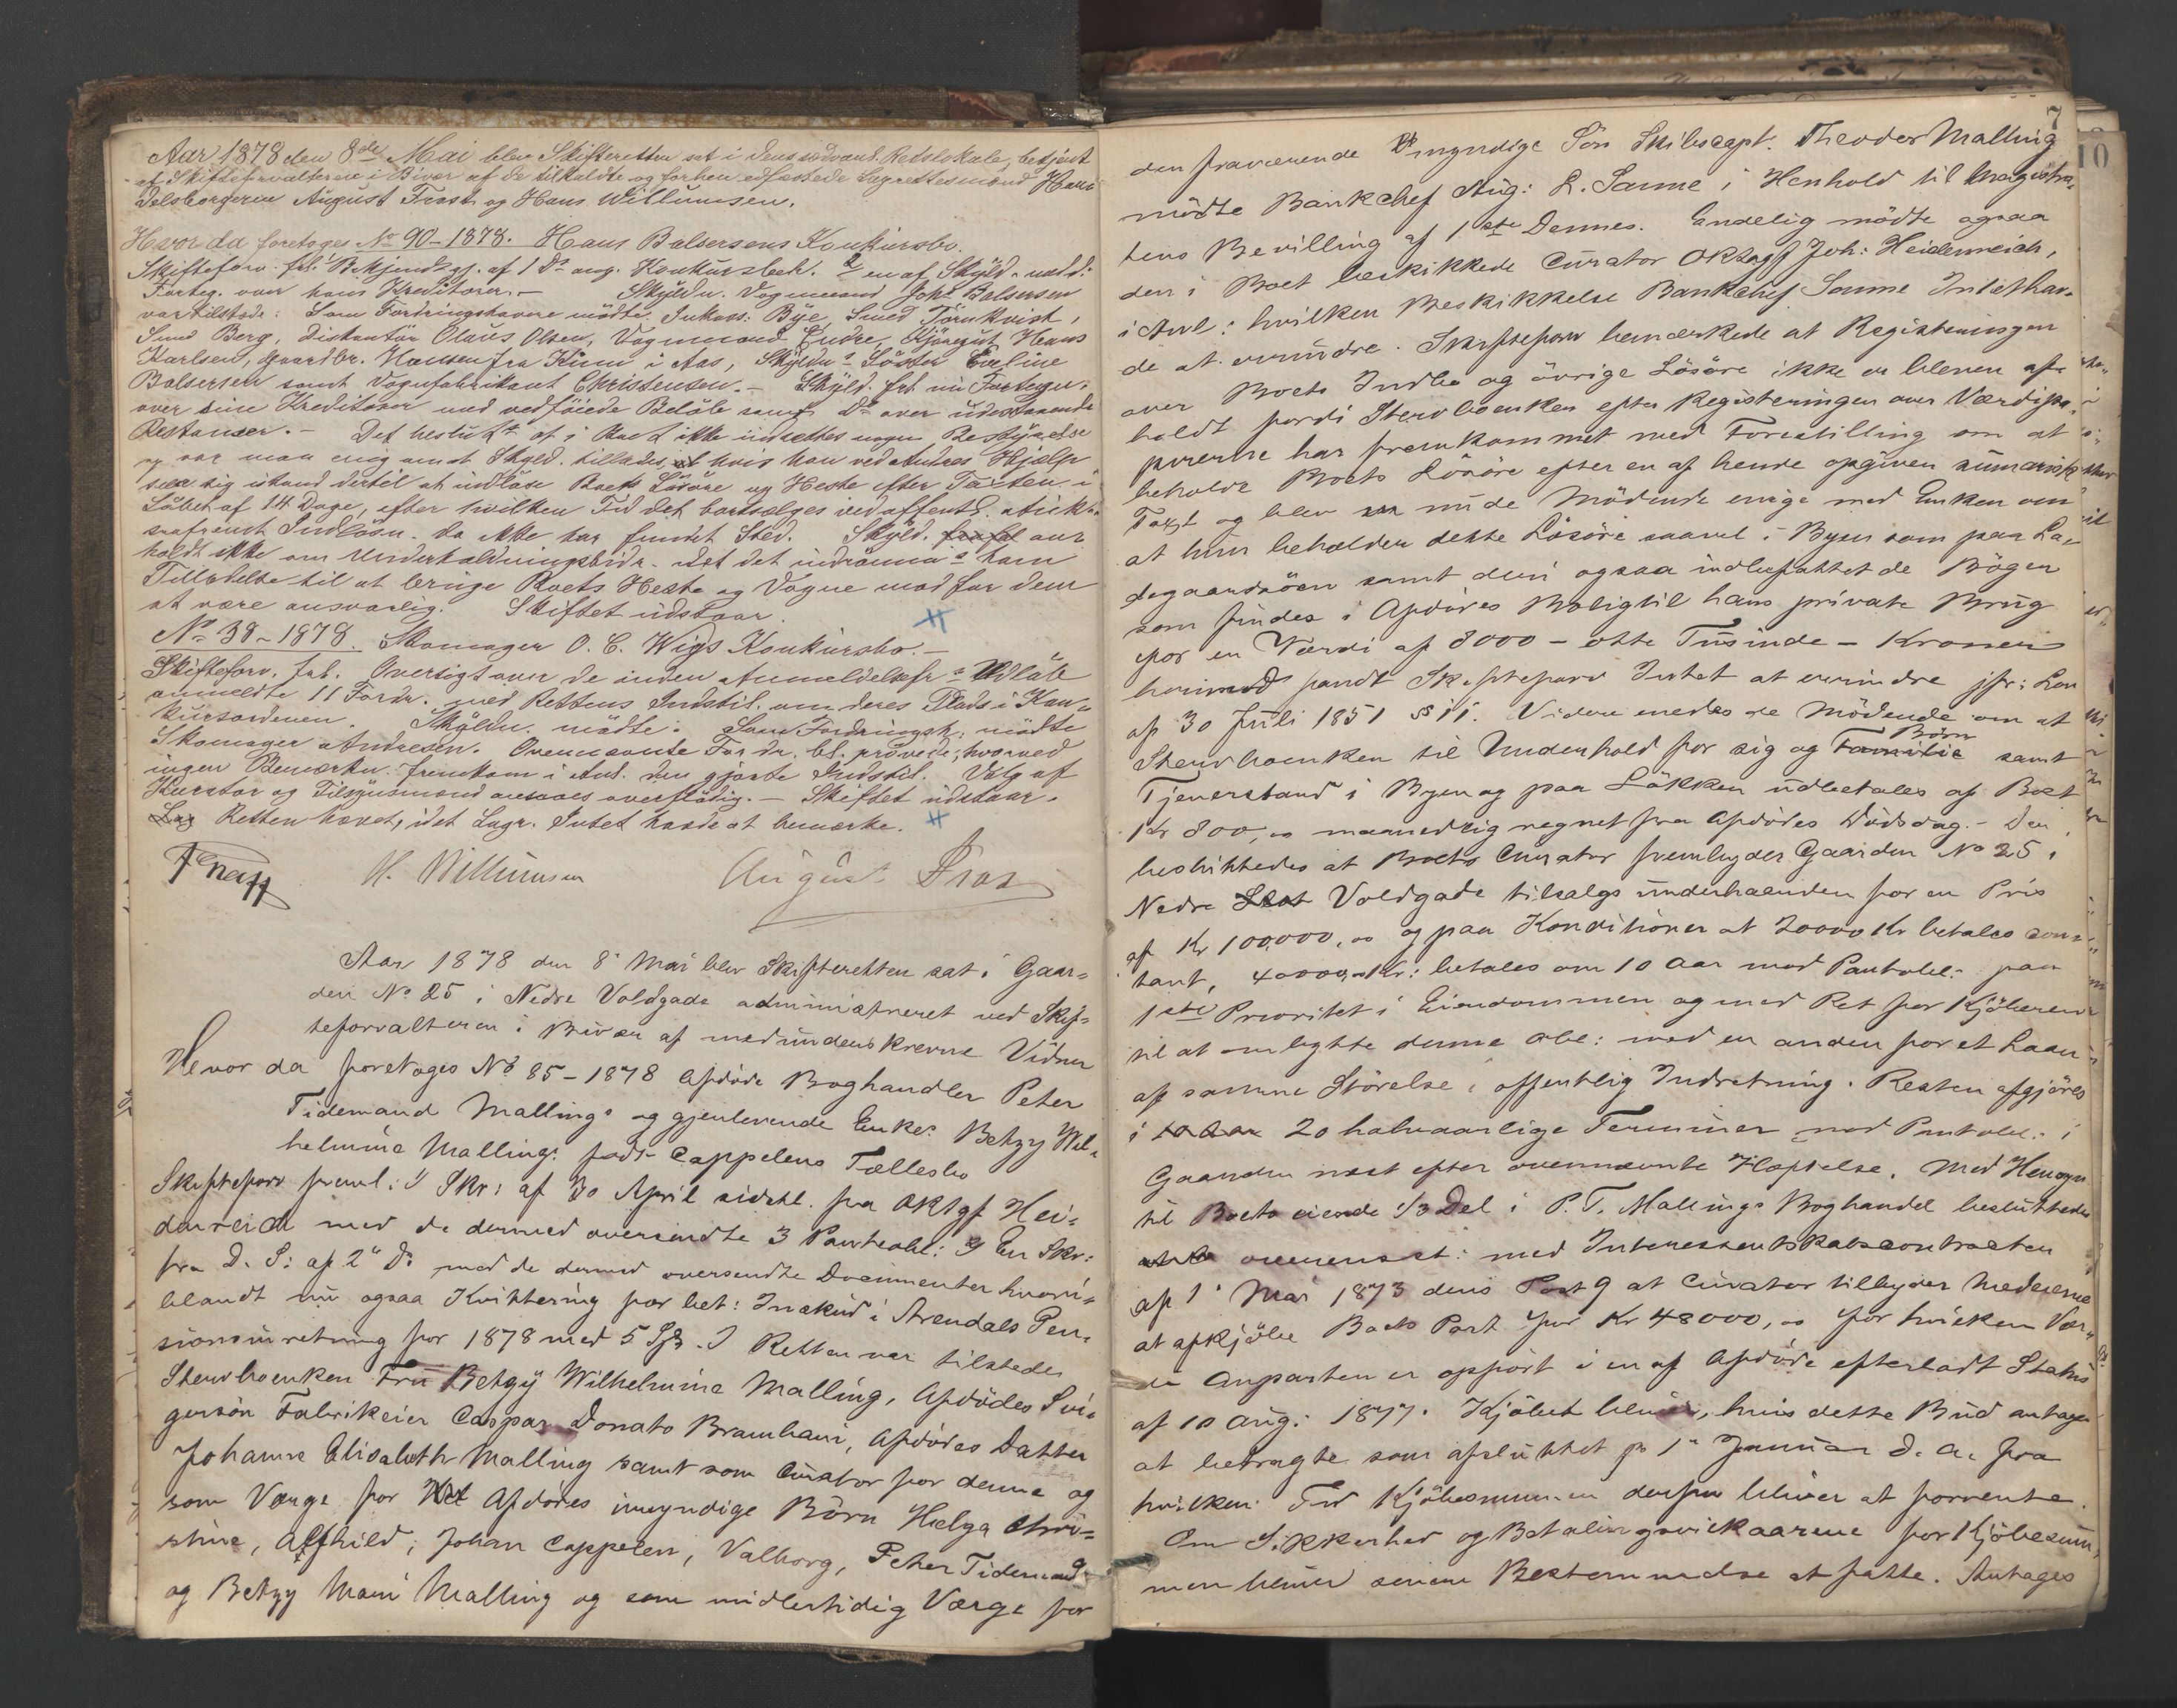 Aar 1878 den 8de Mai blev Skifteretten sat i dens sædvanl. Retslokale, betjent
af Skifteforvalteren i Bivær af de tilkaldte og forhen edfæstede Lagrettesmænd Han-
delsborgerne August Frost og Hans Willumsen.
Hvor da foretoges No 90-1878. Hans Balsersens Konkursbo.
Skifteforv. frl. Bekjendtgj. af 1 Ds ang. Konkursbeh. & en af Skyld. meddt
Forteg. over hans Kreditorer. — Skyldn. Vognmand Johs Balsersen
var tilstede: Som Fordringshavere mødte Inkass: Bye, Smed Törnkvist,
Smed Berg, Distentör Olaus Olsen, Vognmand Endre, Kjöregut Hans
Karlsen, Gaardbr. Hansen fra Kinn i Aas, Skyldns Söster Eveline
Balsersen samt Vognfabrikant Christensen. — Skyld. frl. nu Fortegn.
over sine Kreditorer med vedföiede Belöb samt Do over udestaaende
Restancer. — Det beslutts at i Boet ikke indsættes nogen Bestyrelse
og var man enig om at Skyld. tillades, at hvis han ved Andres Hjælp
seer sig istand dertil at indlöse Boets Lösöre og Heste efter Taxten i
Löbet af 14 Dage, efter hvilken Tid det bortsælges ved offentl. Auktn
saafremt Indlösn. da ikke har fundet Sted. Skyld. frafal an-
holdt ikke om Underholdningsbidr. idet det indrömmes ham
Tilladelse til at bringe Boets Heste og Vogne mod for dem
at være ansvarlig. Skiftet udstaar.
No 38-1878. Skomager O. C. Wigs Konkursbo. —
Skifteforv. frl. Oversigt over de inden Anmeldelsesfrs Udlöb
anmeldte 11 Fordr. med Rettens Indstil. om deres Plads i Kon-
kursordenen. Skyldn. mödte. Som Fordringsh. mödte
Skomager Andresen. Ovennævnte Fordr. bl. prövede, hvorved
ingen Bemærkn. fremkom i Anl. den gjorte Indstil. Valg af
Kurator og Tilsynsmænd ansaaes overflödig. — Skiftet udstaar.
Lag Retten hævet, idet Lagr. Intet havde at bemærke.
H. Willumsen August Frost
Aar 1878 den 8de Mai blev Skifteretten sat i Gaar-
den No 25 i Nedre Voldgade administreret ved Skif-
teforvalteren i Bivær af medunderskrevne Vidner
Hvor da foretoges No 85-1878 Afdöde Boghandler Peter
Tidemand Mallings og gjenlevende Enkes Betzy Wil-
helmine Mallings födt Cappelens Fællesbo
Skifteforv freml: 1) Skr: af 30 April sidstl. fra ORSagf Hei-
denreich med de dermed oversendte 3 Panteobl: 2) En Skr:
fra D. S: af 2den Ds med de dermed oversendte Documenter hvori-
blandt nu ogsaa Kvittering for bet: Indskud i Arendals Pen-
sionsinretning for 1878 med 5 Spd. I Retten var tilstede
Stervboenken Fru Betzy Wilhelmine Malling, Afdödes Svi-
gersön Fabrikeier Caspar Donato Bramhani, Afdödes Datter
Johanne Elisabeth Malling samt som Curator for denne og
som Værge for Afdödes umyndige Börn Helga Chri-
stine, Alfhild, Johan Cappelen, Valborg, Peter Tidemand
og Betzy Marie Malling og som midlertidig Værge for
7
10
den fraværende Umyndige Sön Skibscapt. Theodor Malling
mödte Bankchef Aug: L. Sanne i Henhold til Magistra-
tens Bevilling af 1ste Dennes. Endelig mödte ogsaa
den i Boet beskikkede Curator ORSagf Joh: Heidenreich,
i Anl: hvilken Beskikkelse Bankchef Sanne Intet hav-
de at erindre. Skifteforv bemærkede at Registreringen
over Boets Indbo og övrige Lösöre ikke er bleven af-
holdt fordi Stervboenken efter Registreringen over Værdipa-
pirerne har fremkommet med Forestilling om at
beholde Boets Lösöre efter en af hende opgiven summarisk
Taxt og blev nu de Mödende enige med Enken om
at hun beholder dette Lösöre saavel i Byen som paa La-
degaardsöen samt deri ogsaa indbefattet de Böger
som findes i Afdödes Bolig til hans private Brug
for en Værdi af 8000 - otte Tusinde - Kroner
herimod fandt Skifteforv Intet at erindre jfr: Lov
af 30 Juli 1851 § 11. Videre enedes de Mödende om at
Stervboenken til Underhold for sig og Familie Börn samt
Tjenerstand i Byen og paa Lökken udbetales af Boet
Kr 800,00 maanedlig regnet fra Afdödes Dödsdag. - Der
besluttedes at Boets Curator fremlyder Gaarden No 25 i
Nedre Slot Voldgade tilsalgs underhaanden for en Pris
af Kr 100,000,00 og paa Konditioner at 20000 Kr betales con-
tant, 40000,- Kr: betales om 10 Aar mod Panteobl: paa
1ste Prioritet i Eiendommen og med Ret for Kjöberen
til at ombytte denne Obl: med en anden for et Laan
af samme Störelse i offentlig Indretning. Resten afgjöres
i 20 halvaarlige Terminer mod Panteobl: i
Gaarden næst efter ovennævnte Hæftelse. Med Hensyn
til Boets eiende 1/3 Del i P. T. Mallings Boghandel besluttedes
overensst: med Interessentskabscontracten
af 1ste Mai 1873 dens Post 9 at Curator tilbyder Medeierne
at afkjöbe Boets Part for Kr 48000,00 for hvilken Vær-
di Anparten er opfört i en af Afdöde efterladt Status
af 10 Aug: 1877. Kjöbet bliver, hvis dette Bud antages
at betragte som afsluttet pr 1ste Januar d. A. fra
hvilken Tid Kjöbesummen derfor bliver at forrente.
Om Sikkerhed og Betalingsvilkaarene for Kjöbesum-
men bliver senere Bestemmelse at fatte. Antages